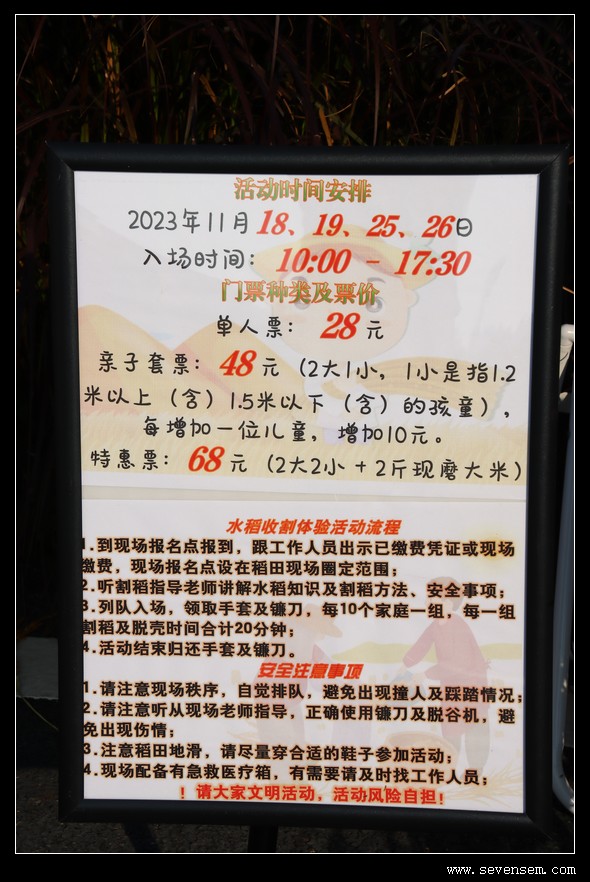 活动时间安排
2023年11月18、19、25、26日
入场时间：10:00 - 17:30
门票种类及票价
单人票：28元
亲子套票：48元（2大1小，1小是指1.2
米以上（含）1.5米以下（含）的孩童），
每增加一位儿童，增加10元。
特惠票：68元（2大2小＋2斤现磨大米）
水稻收割体验活动流程
1.到现场报名点报到，跟工作人员出示已缴费凭证或现场
缴费，现场报名点设在稻田现场圈定范围；
2.听割稻指导老师讲解水稻知识及割稻方法、安全事项；
3.列队入场，领取手套及镰刀，每10个家庭一组，每一组
割稻及脱壳时间合计20分钟；
4.活动结束归还手套及镰刀。
安全注意事项
1.请注意现场秩序，自觉排队，避免出现撞人及踩踏情况；
2.请注意听从现场老师指导，正确使用镰刀及脱谷机，避
免出现伤情；
3.注意稻田地滑，请尽量穿合适的鞋子参加活动；
4.现场配备有急救医疗箱，有需要请及时找工作人员；
！请大家文明活动，活动风险自担！
www.sevensem.com